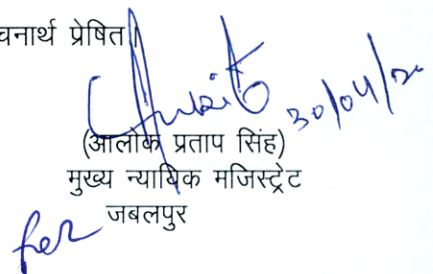 चनार्थ प्रेषित।
30/04/20
(आलोक प्रताप सिंह)
मुख्य न्यायिक मजिस्ट्रेट
जबलपुर
for